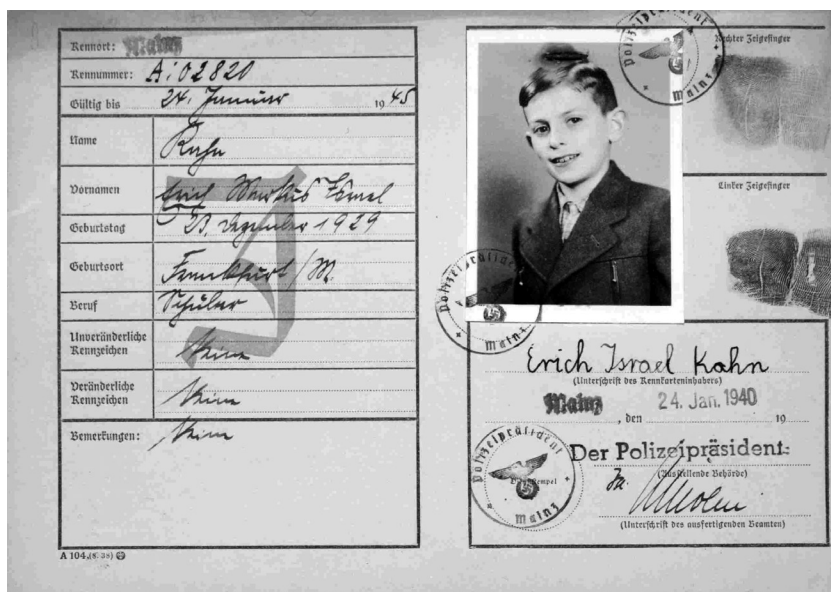 Kennort: Mainz
Kennummer: A:02820
Gültig bis 24. Januar 1945
Name Kahn
Vornamen Erich Markus Israel
Geburtstag 23. Dezember 1929
Geburtsort Frankfurt / M.
Beruf Schüler
Unveränderliche
Kennzeichen Keine
Veränderliche
Kennzeichen Keine
Bemerkungen: Keine
A 104 (8. 38)
J
Rechter Zeigefinger
Linker Zeigefinger
Polizeipräsident
Mainz
Polizeipräsident
Mainz
Erich Israel Kahn
(Unterschrift des Kennkarteninhabers)
Mainz, den 24. Jan. 1940 19
Polizeipräsident
Mainz
Der Polizeipräsident
(Ausstellende Behörde)
(Unterschrift des ausfertigenden Beamten)